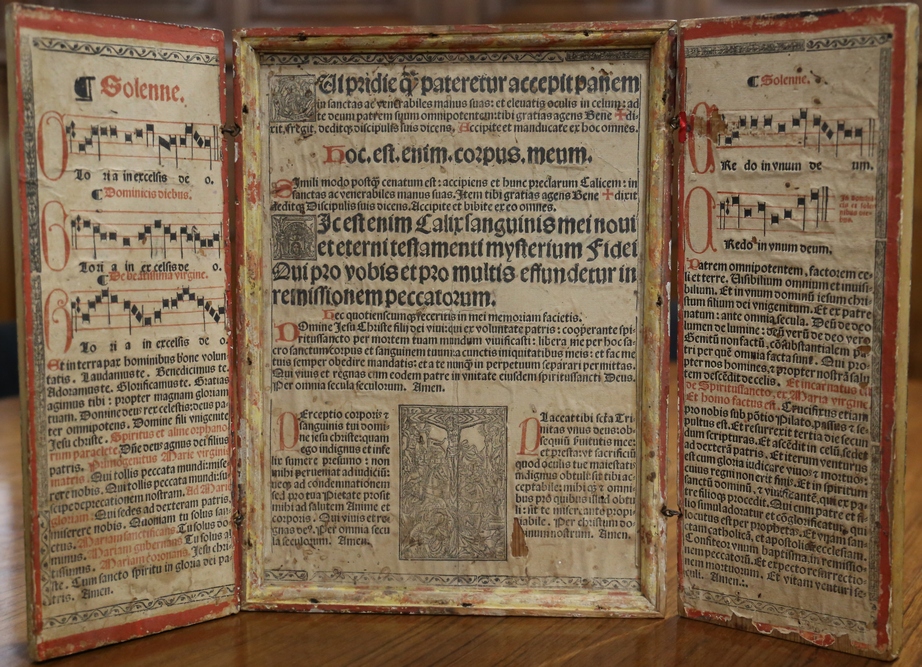 ¶ Solenne.
Lo ria in excelsis de o.
¶ Dominicis diebus.
Lori a in ex celsis de o.
¶ De beatissima virgine.
Lo ri a in excelsis de o.
Et in terra pax hominibus bone volun
tatis. Laudamus te. Benedicimus te.
Adoramus te. Glorificamus te. Gratias
agimus tibi: propter magnam gloriam
tuam. Domine deus rex celestis: deus pa
ter omnipotens. Domine fili vnigenite
Jesu christe. Spiritus et alme orphano
rum paraclete. Dñe deus agnus dei filius
patris. Primogenitus Marie virginis
matris. Qui tollis peccata mundi: mise
rere nobis. Qui tollis peccata mundi: su
scipe deprecationem nostram. Ad Marie
gloriam. Qui sedes ad dexteram patris.
miserere nobis. Quoniam tu solus san
ctus. Mariam sanctificans. Tu solus do
minus. Mariam gubernans. Tu solus al
tissimus. Mariam coronans. Jesu chri
ste. Cum sancto spiritu in gloria dei pa
tris. Amen.
QUi pridie qͣ pateretur accepit panem
in sanctas ac venerabiles manus suas: et eleuatis oculis in celum: ad
te deum patrem suum omnipotentem: tibi gratias agens Bene ✠ di
xit, fregit, deditqꝫ discipulis suis dicens, Accipite et manducate ex hoc omnes.
Hoc. est. enim. corpus. meum.
Simili modo postqͣ cenatum est: accipiens et hunc preclarum Calicem: in
sanctas ac venerabiles manus suas. Item tibi gratias agens Bene ✠ dixit
deditqꝫ Discipulis suis dicens. Accipite et bibite ex eo omnes.
HIc est enim Calix sanguinis mei noui
et eterni testamenti mysterium Fidei
Qui pro vobis et pro multis effundetur in
remissionem peccatorum.
Hec quotienscunqꝫ feceritis in mei memoriam facietis.
DOmine Jesu Christe fili dei viui: qui ex voluntate patris: cooperante spi-
ritusancto per mortem tuam mundum viuificasti: libera me per hoc sa-
crosanctum corpus et sanguinem tuum a cunctis iniquitatibus meis: et fac me
tuis semper obedire mandatis: et a te nunqͣ in perpetuum separari permittas.
Qui viuis et regnas cum eodem patre in vnitate eiusdem spiritussancti Deus.
Per omnia secula seculorum. Amen.
PErceptio corporis ⁊
sanguinis tui domi
ne iesu christe: quam
ego indignus et infe
lix sumere presumo: non
mihi perueniat ad iudiciũ
neqꝫ ad condemnationem
sed pro tua Pietate prosit
mihi ad salutem Anime et
corporis. Qui viuis et re
gnas deꝰ. Per omnia secu
la seculorum. Amen.
PLaceat tibi scťa Tri
nitas vnus deus: ob
sequiũ seruitutis mee:
et presta: vt sacrificiũ
quod oculis tue maiestatis
indignus obtuli: sit tibi ac
ceptabile: mihiqꝫ ⁊ omni
bus pro quibus illud obtu
li: sit te miserante: propi
tiabile. Per christum do
minum nostrum. Amen.
¶ Solenne.
Re do in vnum de um.
Redo in vnum deum.
Patrem omnipotentem, factorem ce-
li et terre. Visibilium omnium et inuisi-
bilium. Et in vnum dominũ iesum chri
stum filium dei vnigenitum. Et ex patre
natum: ante omnia secula. Deũ de deo
lumen de lumine: deũ verũ de deo vero
Genitũ non factũ, cõsubstantialem pa
tri per quẽ omnia facta sunt. Qui pro-
pter nos homines, ⁊ propter nostrã salu
tem descẽdit de celis. Et incarnatus est
de Spiritusancto, ex Maria virgine
Et homo factus est. Crucifixus etiam
pro nobis sub põtio Pilato, passus ⁊ se-
pultus est. Et resurrexit tertia die secun
dum scripturas. Et ascẽdit in celũ, sedet
ad dexterã patris. Et iterum venturus
est cum gloria iudicare viuos ⁊ mortuos:
cuius regni non erit finis. Et in spiritum
sanctum dominũ, ⁊ viuificantẽ, qui ex pa
tre filioqꝫ procedit. Qui cum patre et fi-
lio simul adoratur et cõglorificatur, qui
locutus est per prophetas. Et vnam, san
ctam catholicã, et apostolicã ecclesiam.
Confiteor vnum baptisma, in remissio
nem peccatorũ. Et expecto resurrectio-
nem mortuorum. Et vitam venturi se-
culi. Amen.